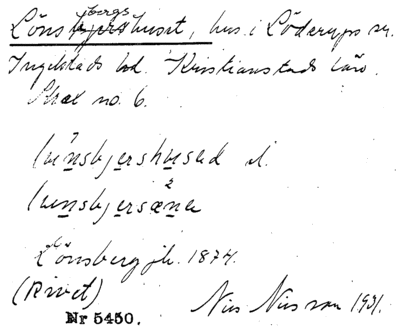 bergs
Lönsbjershuset, hus i Löderups sn.
Ingelstads hd. Kristianstads län.
Skat no. 6.
lwnsbjershused el.
lwnsbjersæne
Lönsberg jb. 1874.
(Rivet)
Nils Nilsson 1931.
Nr 5450.